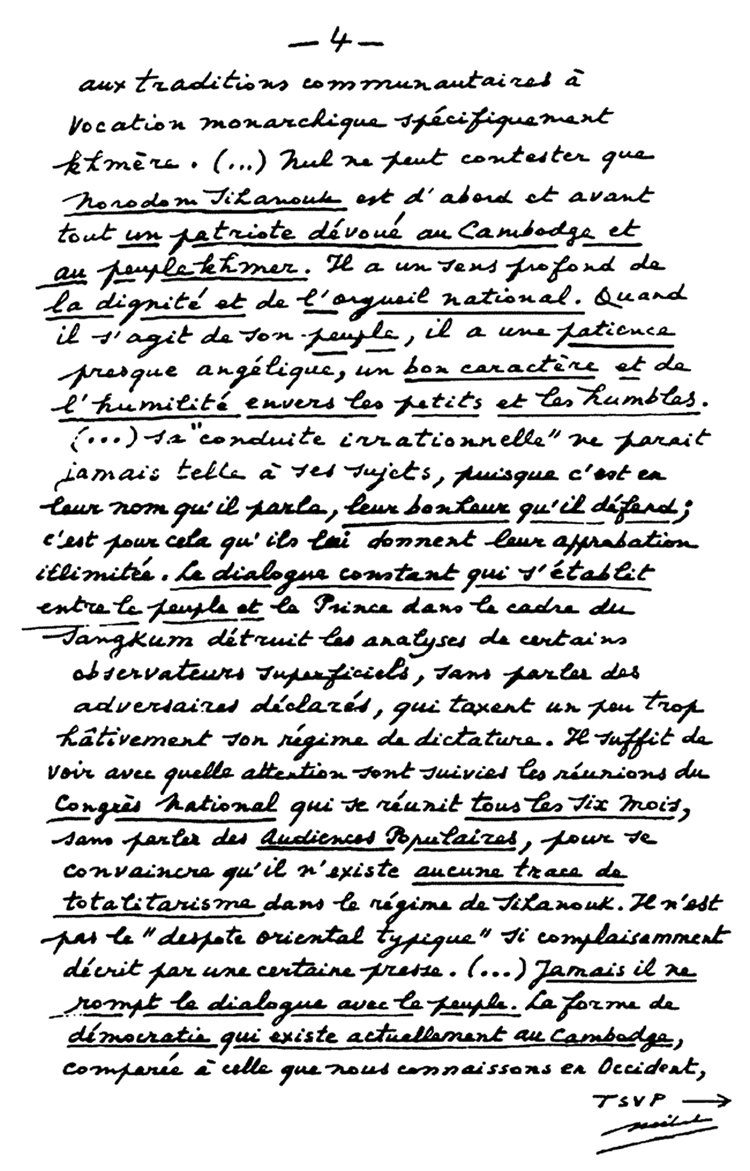 — 4 —
aux traditions communautaires à
vocation monarchique spécifiquement
khmère. (...) Nul ne peut contester que
Norodom Sihanouk est d'abord et avant
tout un patriote dévoué au Cambodge et
au peuple khmer. Il a un sens profond de
la dignité et de l'orgueil national. Quand
il s'agit de son peuple, il a une patience
presque angélique, un bon caractère et de
l'humilité envers les petits et les humbles.
(...) sa "conduite irrationnelle" ne parait
jamais telle à ses sujets, puisque c'est en
leur nom qu'il parle, leur bonheur qu'il défend;
c'est pour cela qu'ils lui donnent leur approbation
illimitée. Le dialogue constant qui s'établit
entre le peuple et le Prince dans le cadre du
Sangkum détruit les analyses de certains
observateurs superficiels, sans parler des
adversaires déclarés, qui taxent un peu trop
hâtivement son régime de dictature. Il suffit de
voir avec quelle attention sont suivies les réunions du
Congrès National qui se réunit tous les six mois,
sans parler des Audiences Populaires, pour se
convaincre qu'il n'existe aucune trace de
totalitarisme dans le régime de Sihanouk. Il n'est
pas le "despote oriental typique" si complaisamment
décrit par une certaine presse. (...) Jamais il ne
rompt le dialogue avec le peuple. La forme de
démocratie qui existe actuellement au Cambodge,
comparée à celle que nous connaissons en Occident,
TSVP →